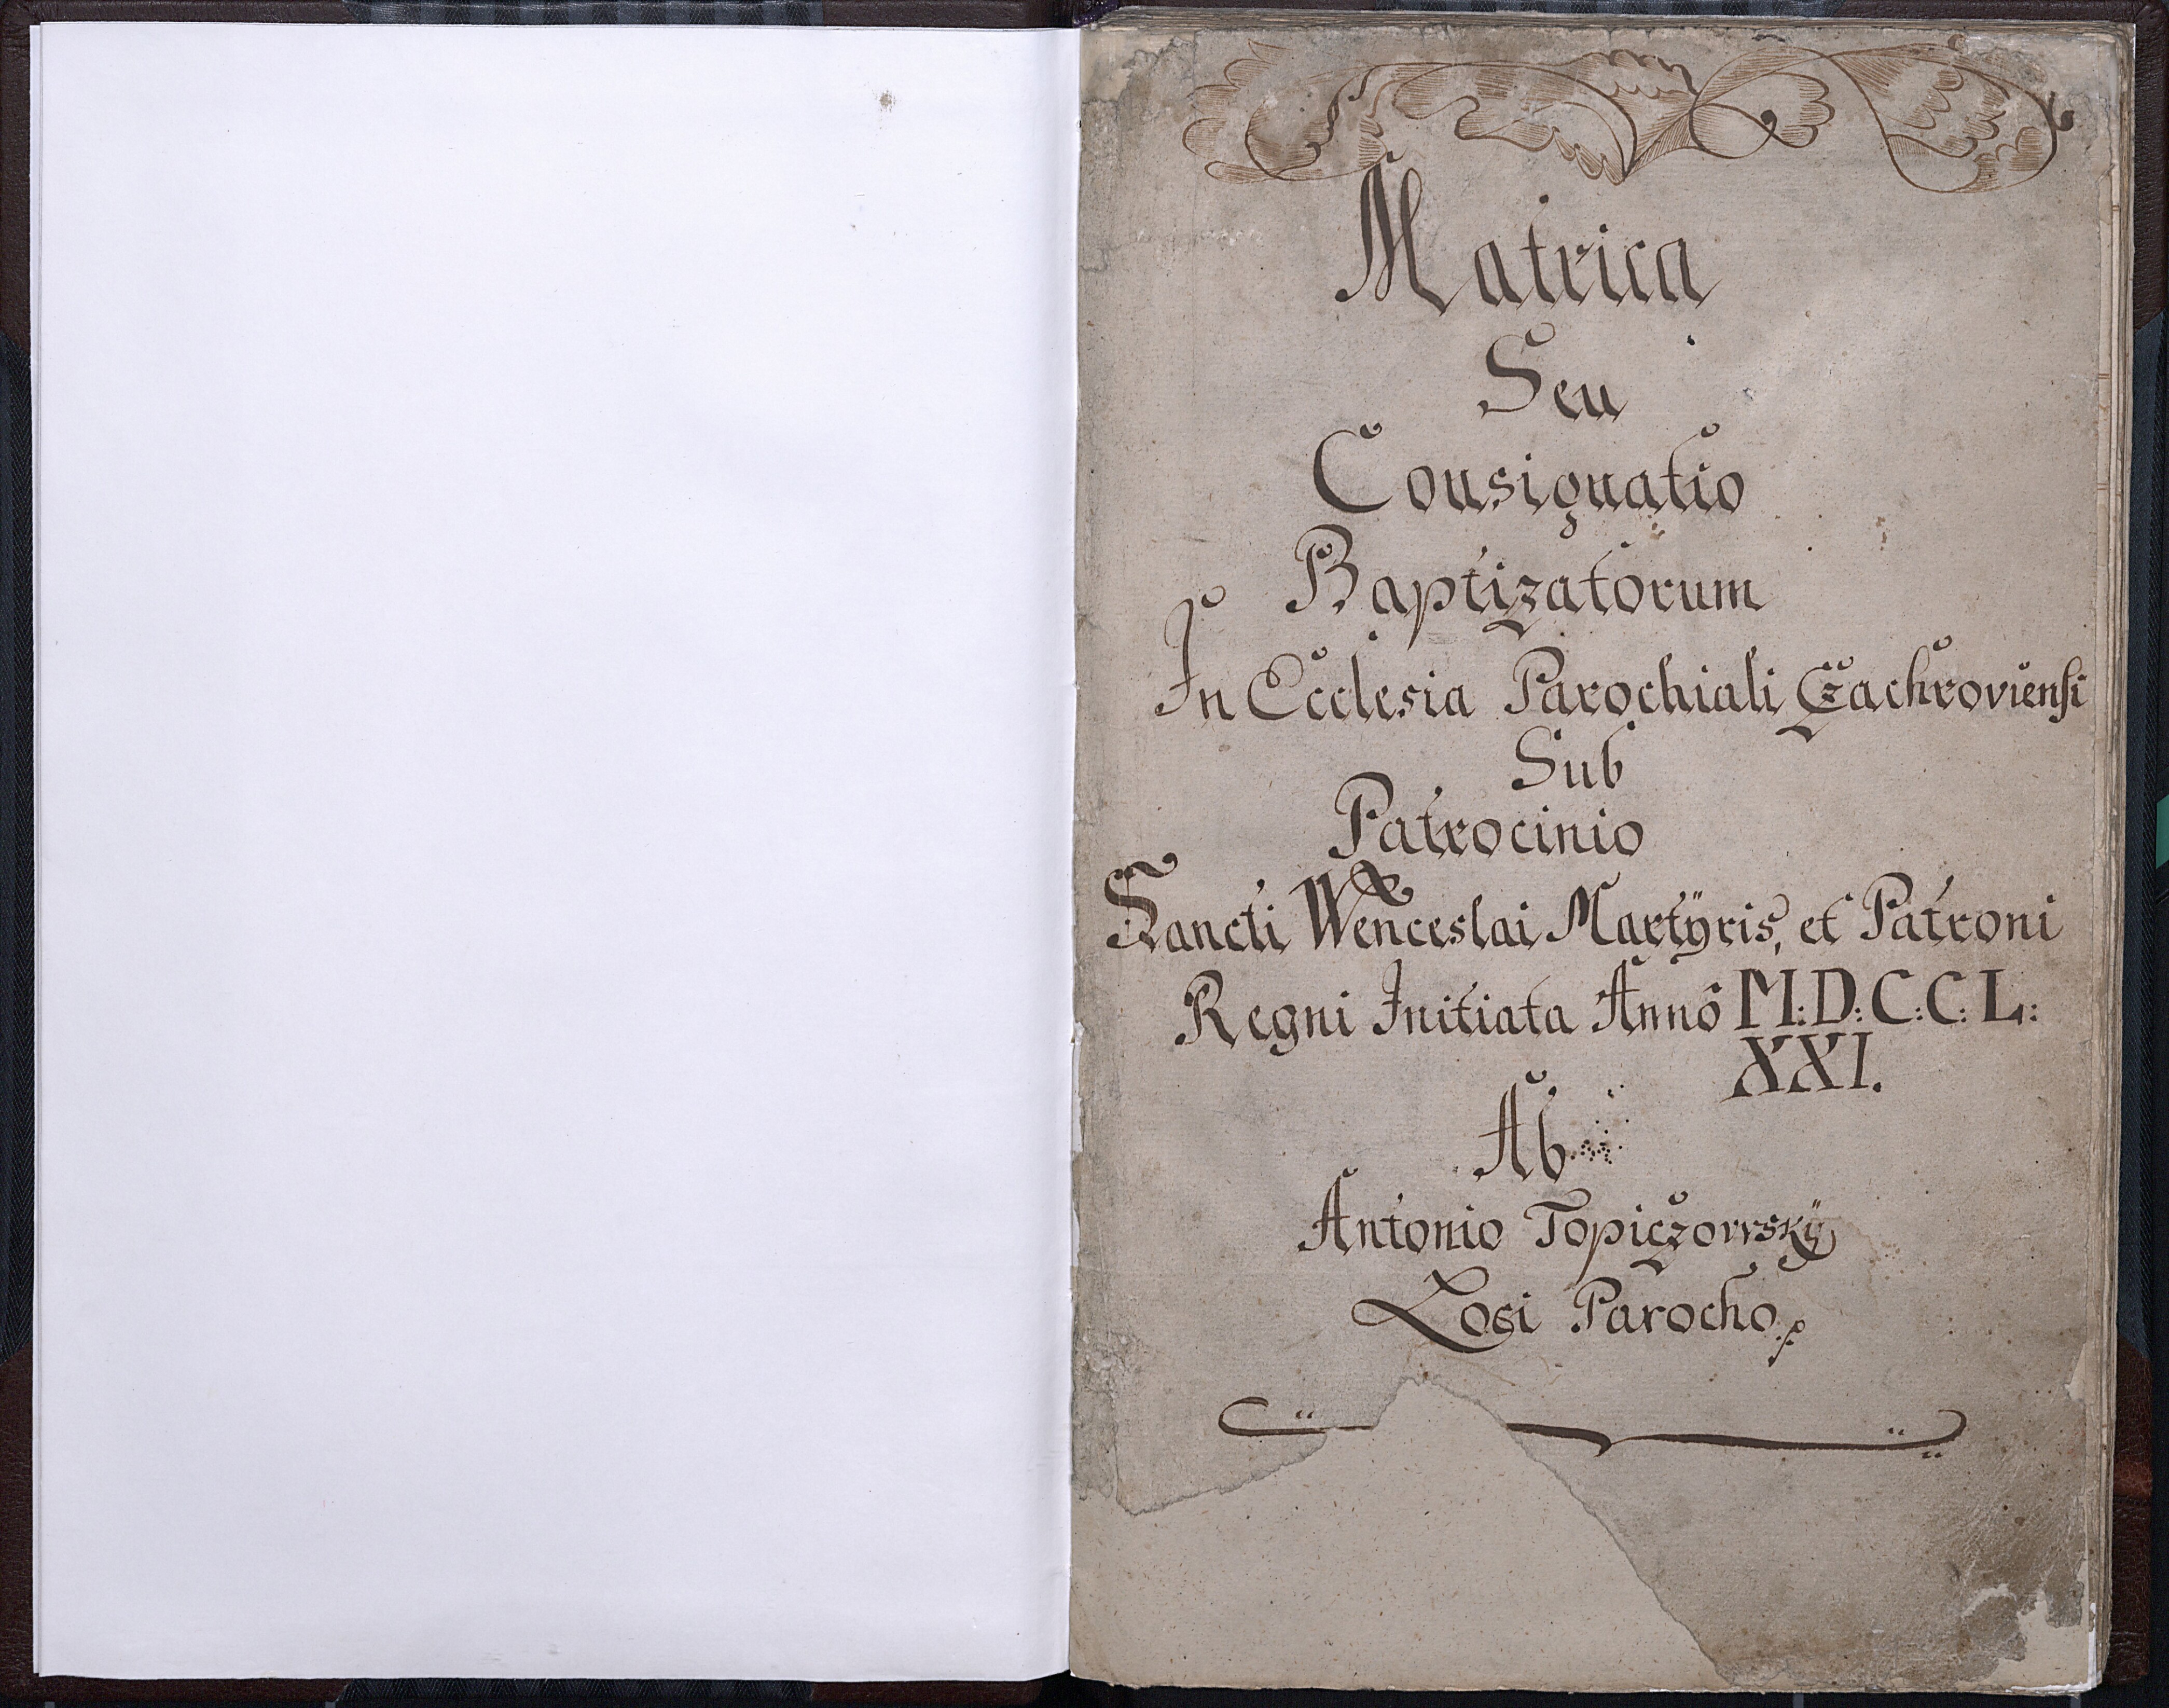 Matrica
Seu
Consignatio
Baptizatorum
In Ecclesia Parochiali Czachroviensi
Sub
Patrocinio
Sancti Wenceslai Martÿris, et Patroni
Regni Initiata Annô M:D:C:C:L:
XXI.
Ab
Antonio Topiczowskÿ
Losi Parocho